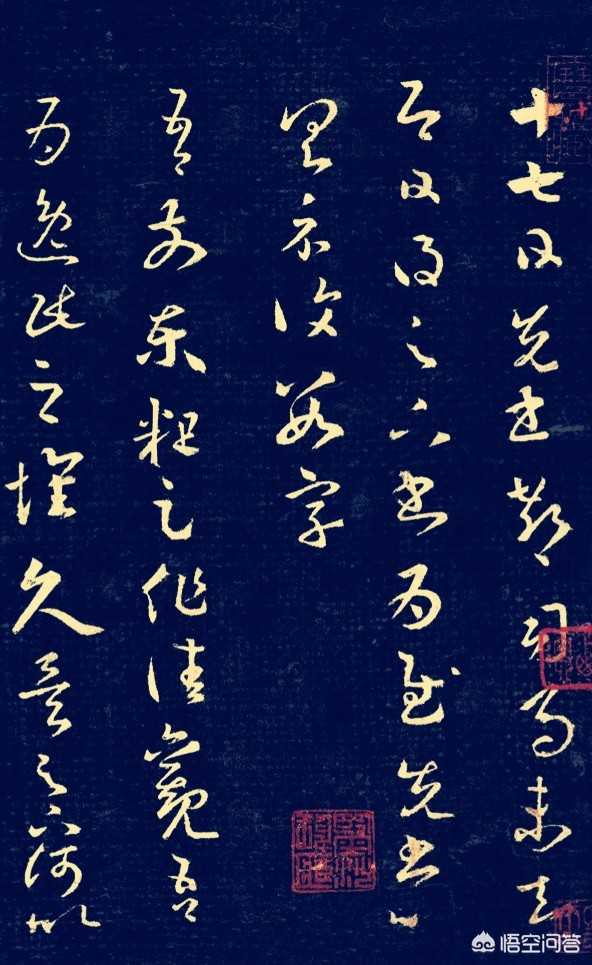 十七日先書郗司馬未去
即日得足下書為慰先書以
具示復數字
吾前東粗足作佳觀吾
為逸民之懷久矣足下何以
悟空问答